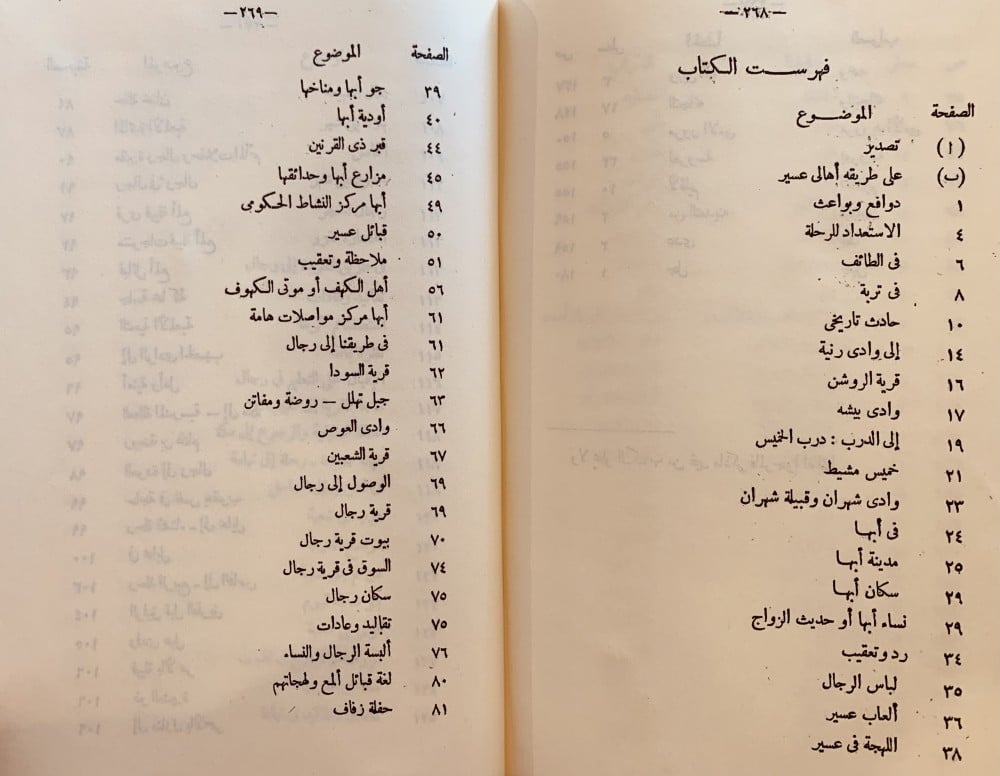 —٢٦٨—
فهرست الكتاب
الصفحة الموضوع
(ا) تصدير
(ب) على طريقه أهالى عسير
١ دوافع وبواعث
٤ الاستعداد للرحلة
٦ فى الطائف
٨ فى تربة
١٠ حادث تاريخى
١٤ إلى وادى رنية
١٦ قرية الروشن
١٧ وادى بيشه
١٩ إلى الدرب : درب الخميس
٢١ خميس مشيط
٢٣ وادى شهران وقبيلة شهران
٢٤ فى أبها
٢٥ مدينة أبها
٢٩ سكان أبها
٢٩ نساء أبها أو حديث الزواج
٣٤ رد وتعقيب
٣٥ لباس الرجال
٣٦ ألعاب عسير
٣٨ اللهجة فى عسير
—٢٦٩—
الصفحة الموضوع
٣٩ جو أبها ومناخها
٤٠ أودية أبها
٤٤ قبر ذى القرنين
٤٥ مزارع أبها وحدائقها
٤٩ أبها مركز النشاط الحكومى
٥٠ قبائل عسير
٥١ ملاحظة وتعقيب
٥٦ أهل الكهف أو موتى الكهوف
٦١ أبها مركز مواصلات هامة
٦١ فى طريقنا إلى رجال
٦٢ قرية السودا
٦٣ جبل تهلل — روضة ومفاتن
٦٦ وادى العوص
٦٧ قرية الشعبين
٦٩ الوصول إلى رجال
٦٩ قرية رجال
٧٠ بيوت قرية رجال
٧٤ السوق فى قرية رجال
٧٥ سكان رجال
٧٥ تقاليد وعادات
٧٦ ألبسة الرجال والنساء
٨٠ لغة قبائل ألمع ولهجاتهم
٨١ حفلة زفاف